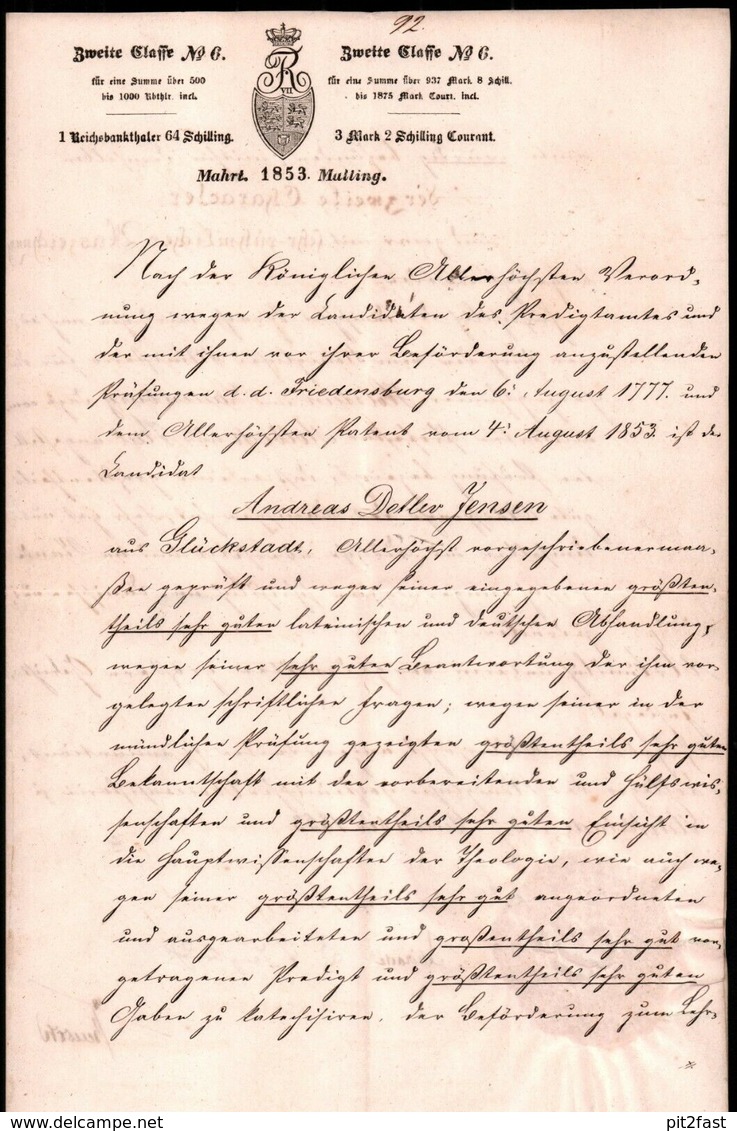 92.
Zweite Classe No 6.
für eine Summe über 500
bis 1000 Rbthlr. incl.
1 Reichsbankthaler 64 Schilling.
FR
VII
Zweite Classe No 6.
für eine Summe über 937 Mark 8 Schill.
bis 1875 Mark Cour. incl.
3 Mark 2 Schilling Courant.
Mahrt. 1853. Matling.
Nach der Königlichen Allerhöchsten Verord-
nung wegen der Candidaten des Predigtamtes und
der mit ihnen vor ihrer Beförderung anzustellenden
Prüfungen d. d. Friedensburg den 6. August 1777. und
dem Allerhöchsten Patent vom 4. August 1853. ist der
Candidat
Andreas Detlev Jensen
aus Glückstadt, Allerhöchst vorgeschriebenermaa-
ßen geprüft und wegen seiner eingegebenen größten-
theils sehr guten lateinischen und deutschen Abhandlung,
wegen seiner sehr guten Beantwortung der ihm vor-
gelegten schriftlichen Fragen; wegen seiner in der
mündlichen Prüfung gezeigten größtentheils sehr guten
Bekanntschaft mit den vorbereitenden und Hülfswis-
senschaften und größtentheils sehr guten Einsicht in
die Hauptwissenschaften der Theologie, wie auch we-
gen seiner größtentheils sehr gut angeordneten
und ausgearbeiteten und großentheils sehr gut vor-
getragenen Predigt und größtentheils sehr guten
Gaben zu katechisiren, der Beförderung zum Lehr-
pit2fast